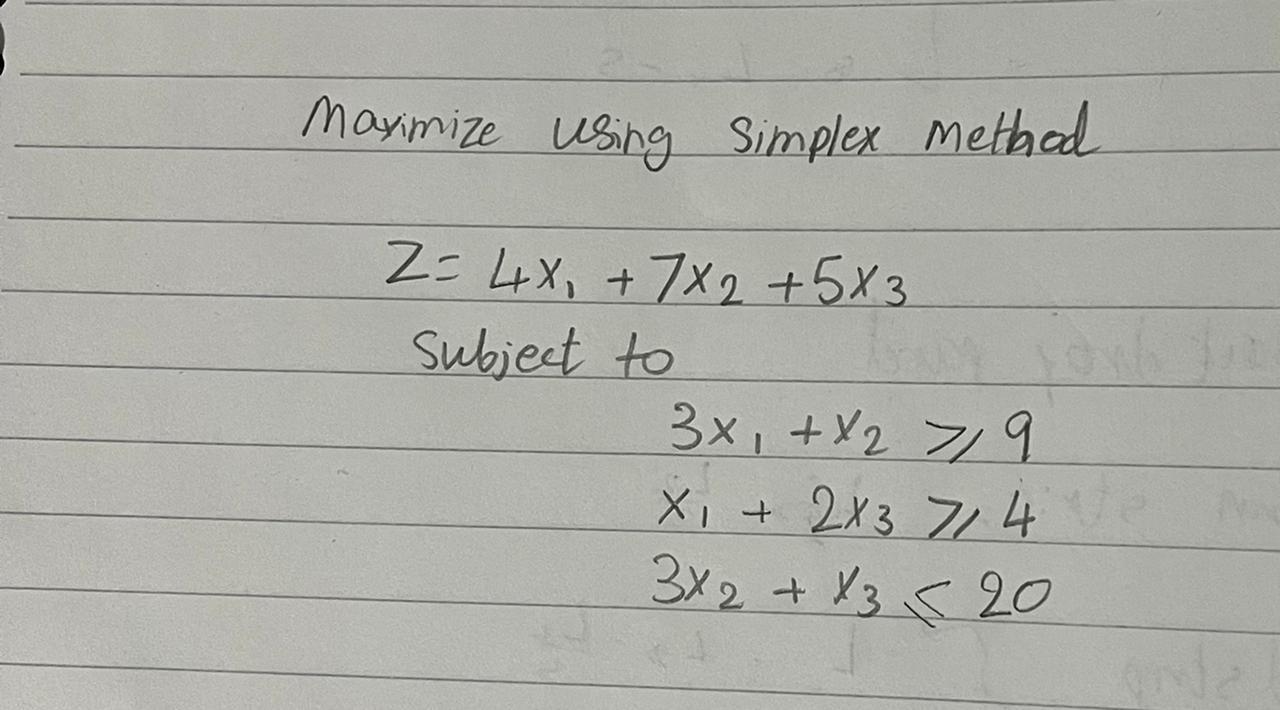 Maximize using Simplex Method
Z= 4x₁ + 7x₂ + 5x₃
Subject to
3x₁ + x₂ ⩾ 9
x₁ + 2x₃ ⩾ 4
3x₂ + x₃ ⩽ 20